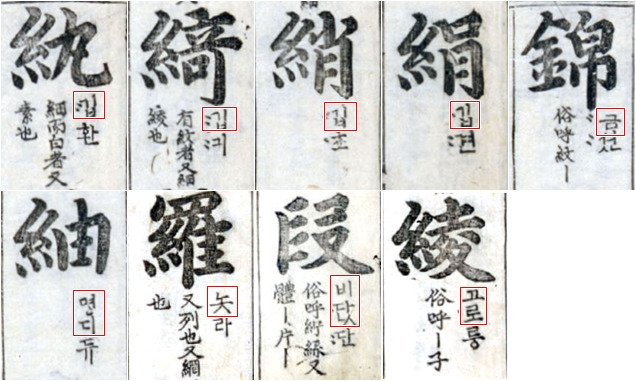 紈
깁환
細而白者又
素也
綺
깁긔
有紋者又細
綾也
綃
깁쵸
絹
깁견
錦
금
俗呼紋ー
紬
면듀
羅
노라
又列也又網
也
段
비단단
俗呼紵絲又
體ー片ー
綾
고로릉
俗呼ー子